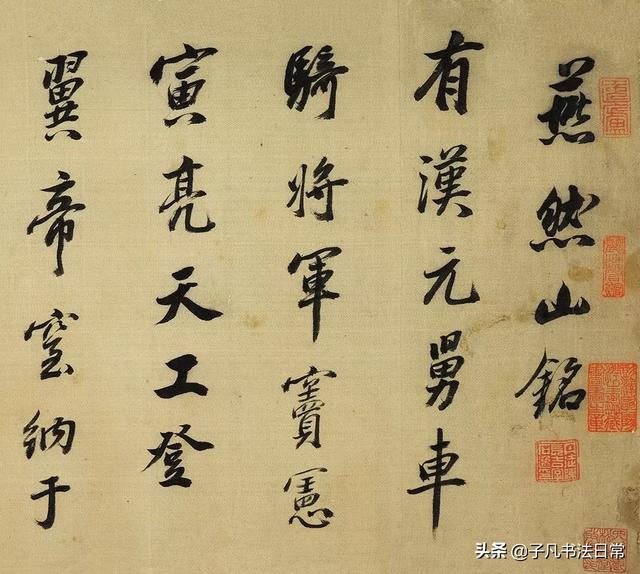 燕然山銘
有漢元舅車
騎將軍竇憲
寅亮天工登
翼帝室納于
头条 @子凡书法日常